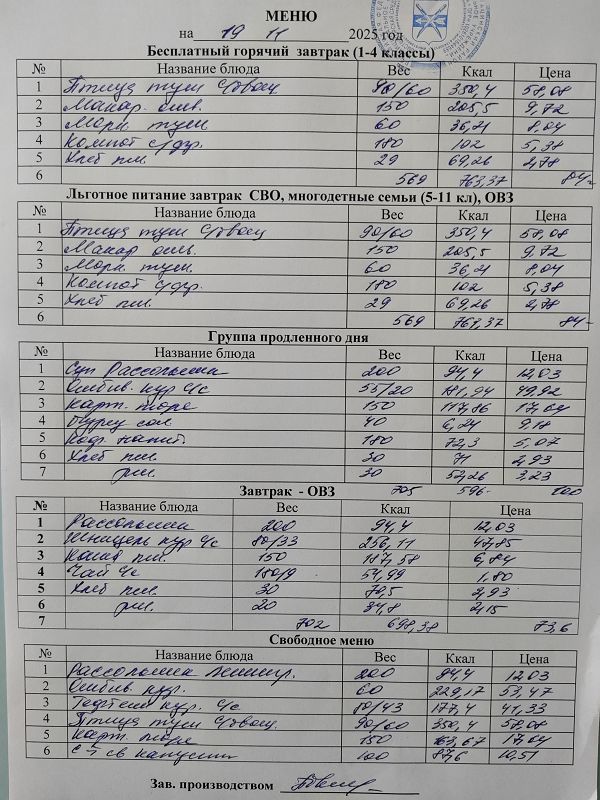 МЕНЮ
на 19 11 2025 год
Бесплатный горячий завтрак (1-4 классы)
№ Название блюда Вес Ккал Цена
1 Птица туш с/овощ 90/60 350,4 58,08
2 Макар. отв. 150 205,5 9,72
3 Морк. туш 60 36,21 8,04
4 Компот с/фр. 180 102 5,38
5 Хлеб пш. 29 69,26 2,78
6 569 763,37 84-
Льготное питание завтрак СВО, многодетные семьи (5-11 кл), ОВЗ
№ Название блюда Вес Ккал Цена
1 Птица туш с/овощ 90/60 350,4 58,08
2 Макар отв. 150 205,5 9,72
3 Морк. туш. 60 36,21 8,04
4 Компот с/фр. 180 102 5,38
5 Хлеб пш. 29 69,26 2,78
6 569 763,37 84-
Группа продленного дня
№ Название блюда Вес Ккал Цена
1 Суп Рассольник 200 94,4 12,03
2 Отбив. кур 4с 55/20 181,94 49,92
3 Карт. пюре 150 117,86 17,04
4 Огурец сол 40 6,24 9,18
5 Коф. напит. 180 72,3 5,07
6 Хлеб пш. 30 71 2,93
7 рж. 30 52,26 3,23
Завтрак - ОВЗ 705 596- 100
№ Название блюда Вес Ккал Цена
1 Рассольник 200 94,4 12,03
2 Шницель кур 4с 80/33 256,11 47,85
3 Каша пш. 150 187,58 6,84
4 Чай 4с 180/9 54,99 1,80
5 Хлеб пш. 30 70,5 2,93
6 рж. 20 34,8 2,15
7 702 698,38 73,6
Свободное меню
№ Название блюда Вес Ккал Цена
1 Рассольник ленингр. 200 94,4 12,03
2 Отбив. кур. 60 229,17 53,47
3 Тефтели кур. 4с 80/43 177,4 41,33
4 Птица туш с/овощ. 90/60 350,4 58,08
5 Карт. пюре 150 163,67 17,04
6 С-т св капусты 100 87,6 10,51
Зав. производством